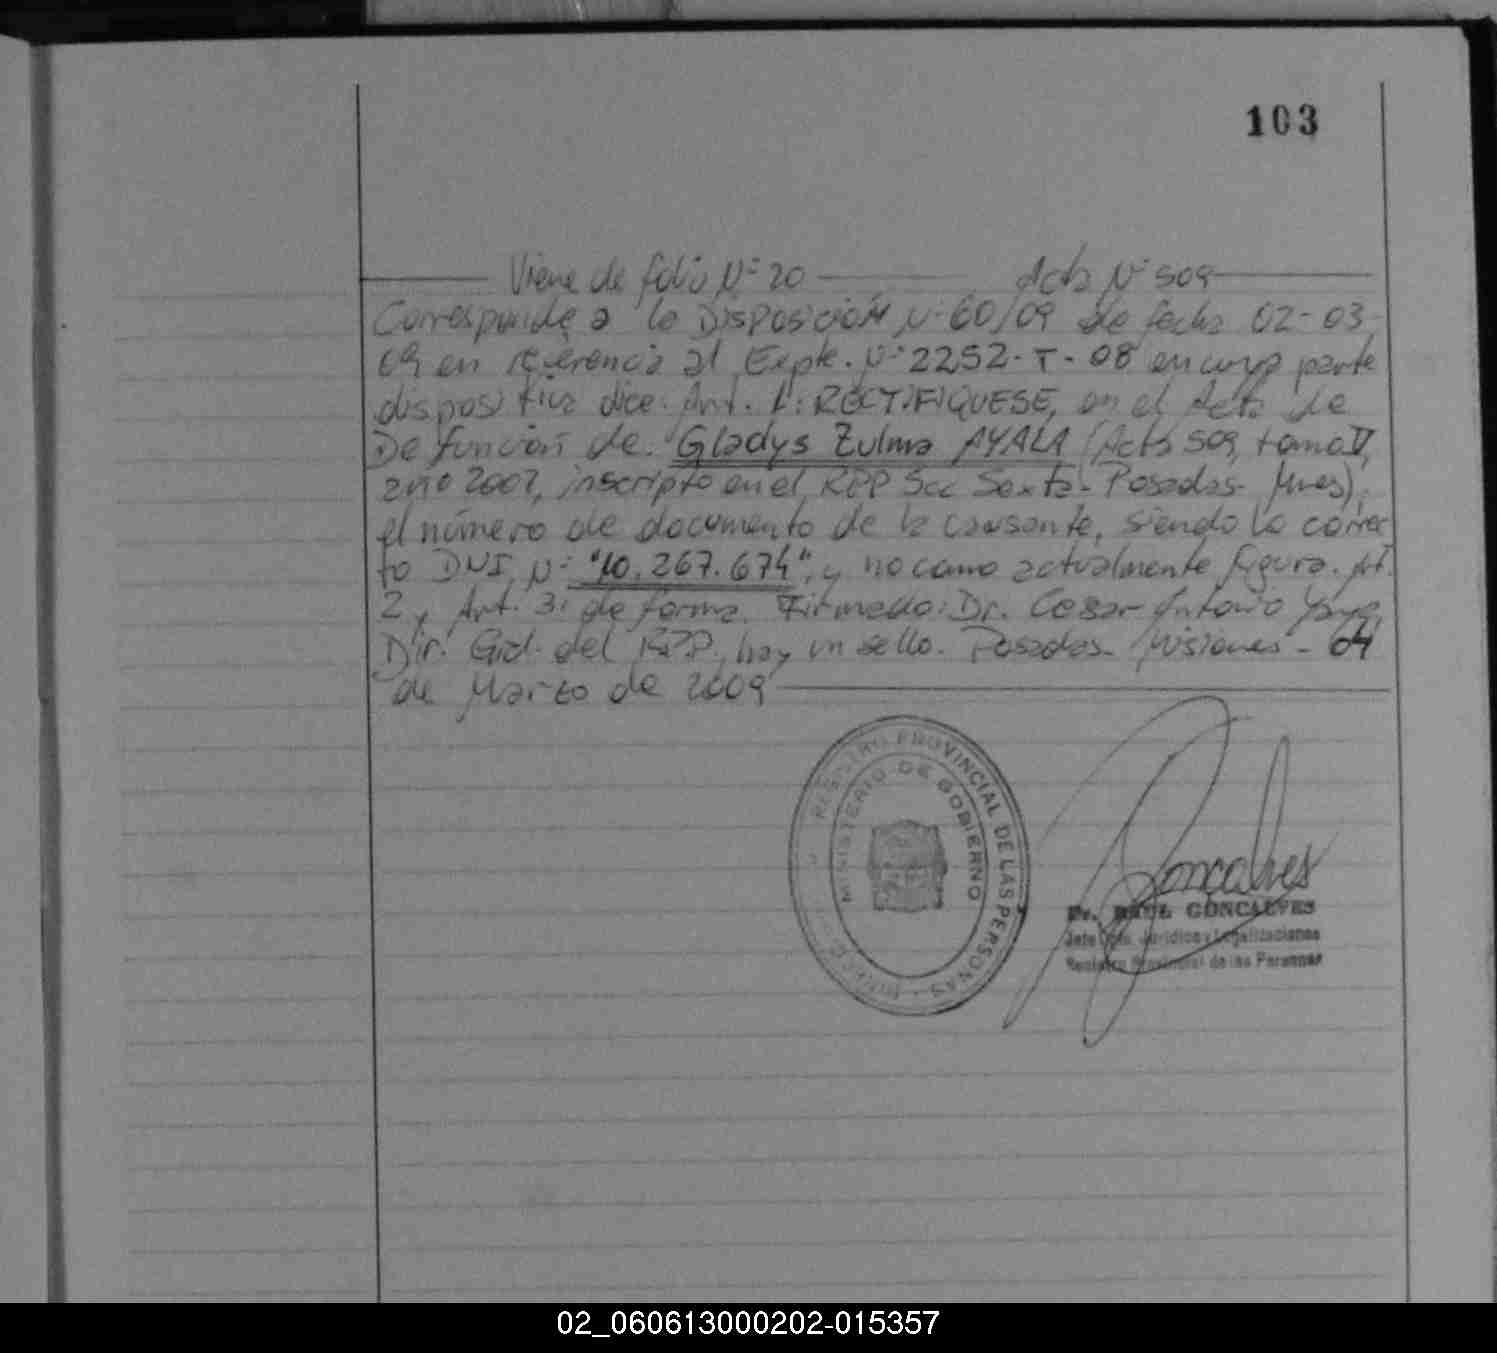 103
Viene de folio Nº 20 Acta Nº 509
Corresponde a la Disposición Nº 60/09 de fecha 02-03-
09 en referencia al Expte. Nº 2252-T-08 en cuya parte
dispositiva dice: Art. 1: RECTIFIQUESE, en el Acta de
Defunción de: Gladys Zulma AYALA (Acta 509, tomo V,
año 2007, inscripto en el RPP Sec Sexta- Posadas- Mnes),
el número de documento de la causante, siendo lo correc
to DNI, Nº "10.267.674", y no como actualmente figura. Art.
2 y Art. 3: de forma. Firmado: Dr. Cesar Antonio
Dir. Gral. del RPP, hay un sello. Posadas- Misiones- 04
de Marzo de 2009
REGISTRO PROVINCIAL DE LAS PERSONAS
MINISTERIO DE GOBIERNO
Goncalves
Dr. RAUL GONCALVES
Jefe Dpto. Jurídico y Legalizaciones
Registro Provincial de las Personas
02_060613000202-015357